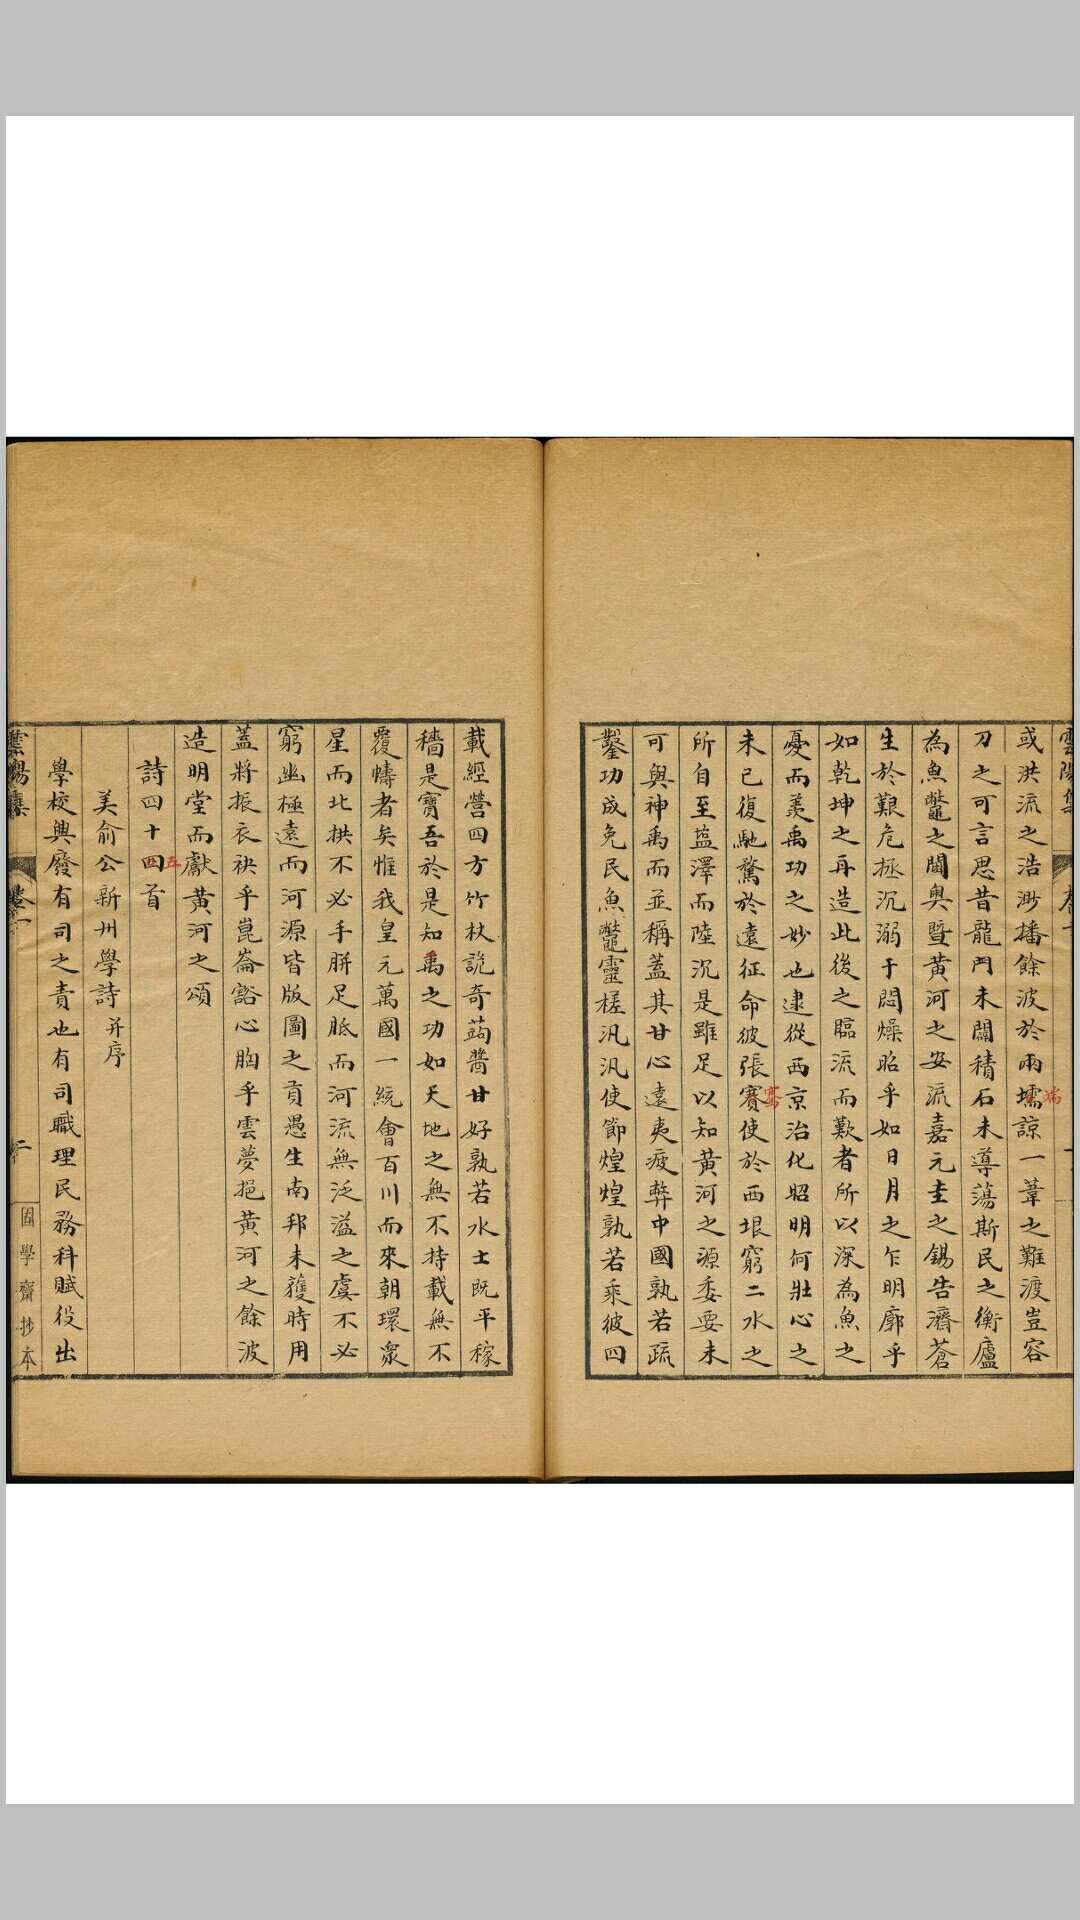 雲陽集
或洪流之浩渺播餘波於兩壖諒一葦之難渡豈容
端
刀之可言思昔龍門未闢積石未導蕩斯民之衡廬
為魚鼈之閫奧暨黃河之安流嘉元圭之錫告濟蒼
生於艱危拯沉溺于悶燥昭乎如日月之乍明廓乎
如乾坤之再造此後之臨流而歎者所以深為魚之
憂而羨禹功之妙也逮從西京治化昭明何壯心之
未已復馳騖於遠征命彼張賽使於西垠窮二水之
騫
所自至盐澤而陸沉是雖足以知黃河之源委要未
可與神禹而並稱蓋其甘心遠夷疲弊中國孰若疏
鑿功成免民魚鼈靈槎汎汎使節煌煌孰若乘彼四
載經營四方竹杖詭奇蒟醬甘好孰若水土既平稼
穡是寶吾於是知禹之功如天地之無不持載無不
覆幬者矣惟我皇元萬國一統會百川而來朝環衆
星而北拱不必手胼足胝而河流無泛溢之虞不必
窮幽極遠而河源皆版圖之貢愚生南邦未獲時用
蓋將振衣袂乎崑崙豁心胸乎雲夢挹黃河之餘波
造明堂而獻黃河之頌
詩四十四首
五
美俞公新州學詩并序
學校興廢有司之責也有司職理民務科賦役出
雲陽集 卷一 二 固學齋抄本